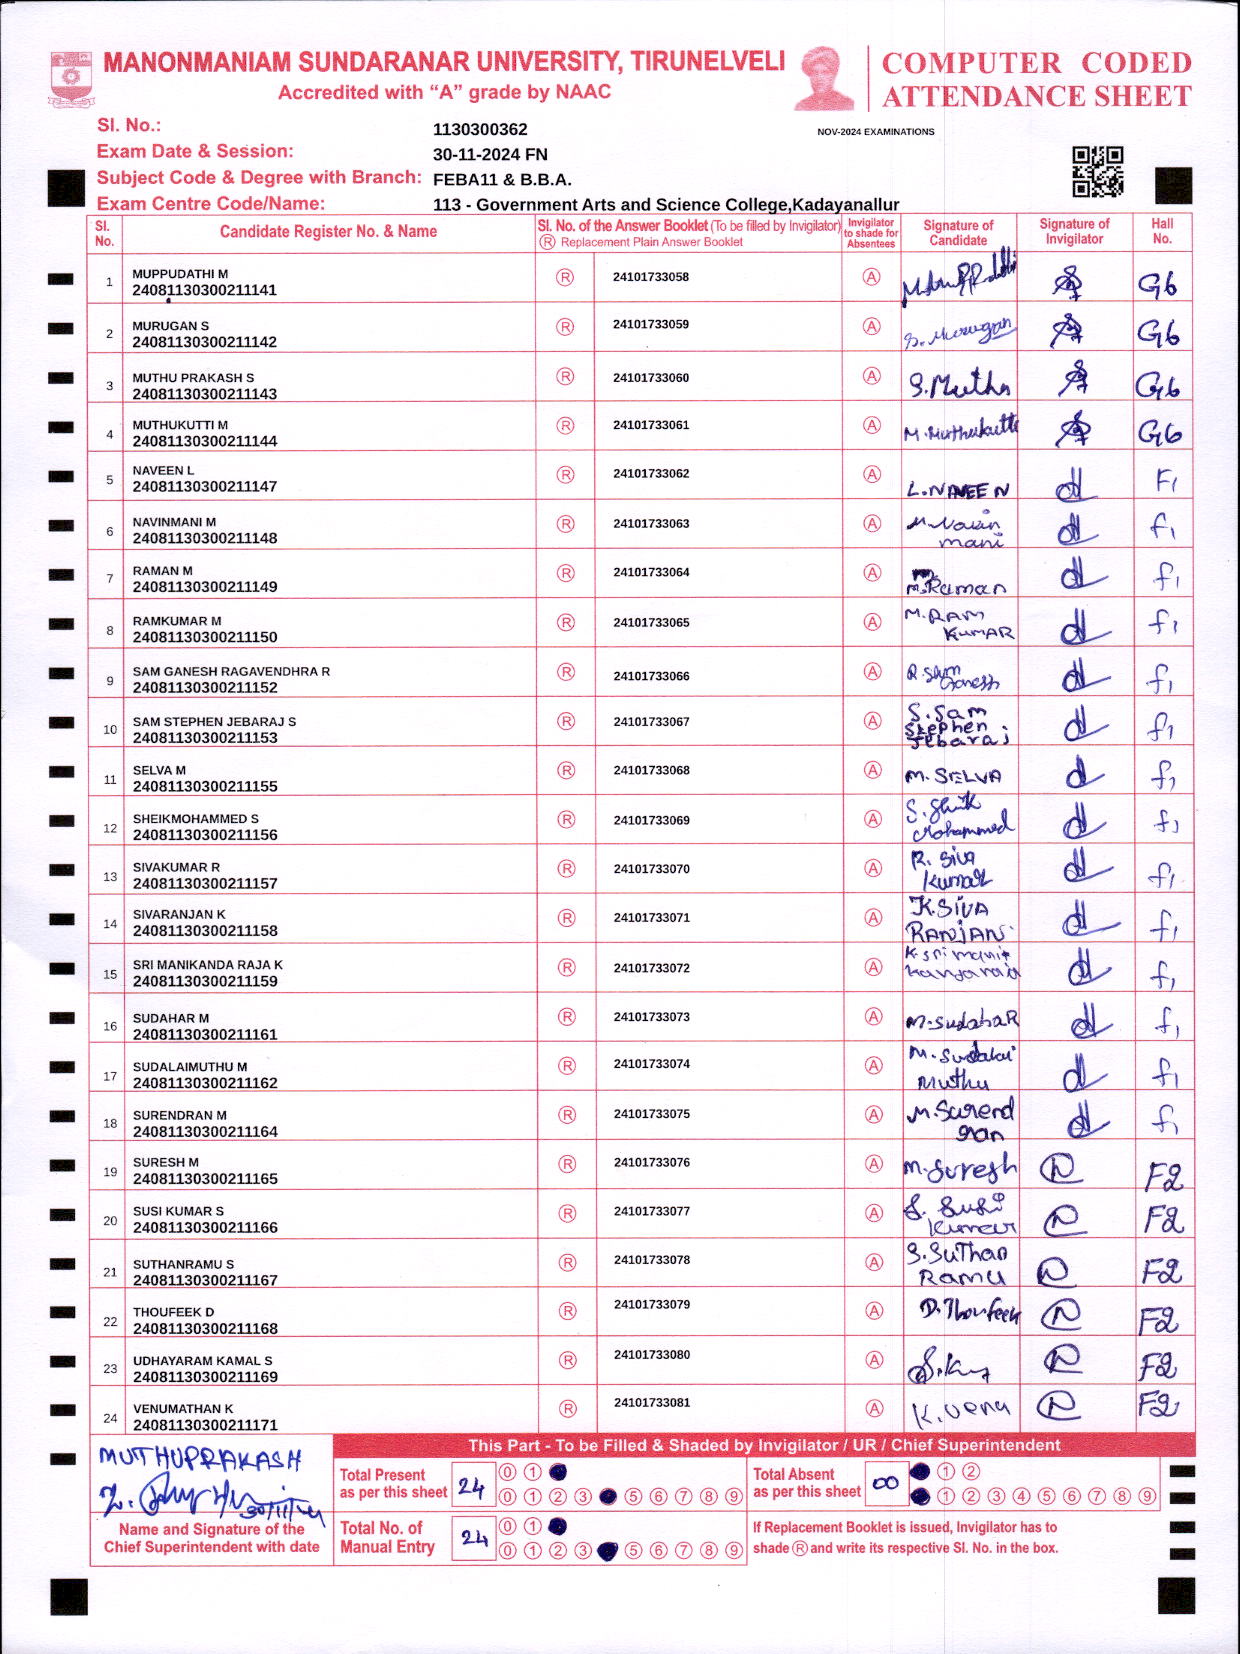 MANONMANIAM SUNDARANAR UNIVERSITY, TIRUNELVELI
Accredited with “A” grade by NAAC
COMPUTER CODED
ATTENDANCE SHEET
NOV-2024 EXAMINATIONS
Sl. No.: 1130300362
Exam Date & Session: 30-11-2024 FN
Subject Code & Degree with Branch: FEBA11 & B.B.A.
Exam Centre Code/Name: 113 - Government Arts and Science College,Kadayanallur
Sl. No. Candidate Register No. & Name Sl. No. of the Answer Booklet (To be filled by Invigilator) Ⓡ Replacement Plain Answer Booklet Invigilator to shade for Absentees Signature of Candidate Signature of Invigilator Hall No.
1 MUPPUDATHI M Ⓡ 24101733058 Ⓐ G6
24081130300211141
2 MURUGAN S Ⓡ 24101733059 Ⓐ S. Murugan G6
24081130300211142
3 MUTHU PRAKASH S Ⓡ 24101733060 Ⓐ S. Muthu G6
24081130300211143
4 MUTHUKUTTI M Ⓡ 24101733061 Ⓐ M. Muthukutti G6
24081130300211144
5 NAVEEN L Ⓡ 24101733062 Ⓐ L. NAVEEN F1
24081130300211147
6 NAVINMANI M Ⓡ 24101733063 Ⓐ M. Navin mani f1
24081130300211148
7 RAMAN M Ⓡ 24101733064 Ⓐ M. Raman f1
24081130300211149
8 RAMKUMAR M Ⓡ 24101733065 Ⓐ M. RAM KUMAR f1
24081130300211150
9 SAM GANESH RAGAVENDHRA R Ⓡ 24101733066 Ⓐ R. Sam Ganesh f1
24081130300211152
10 SAM STEPHEN JEBARAJ S Ⓡ 24101733067 Ⓐ S. Sam Stephen Jebaraj f1
24081130300211153
11 SELVA M Ⓡ 24101733068 Ⓐ M. SELVA f1
24081130300211155
12 SHEIKMOHAMMED S Ⓡ 24101733069 Ⓐ S. Sheik Mohammed f1
24081130300211156
13 SIVAKUMAR R Ⓡ 24101733070 Ⓐ R. Siva Kumar f1
24081130300211157
14 SIVARANJAN K Ⓡ 24101733071 Ⓐ K. SIVA RANJAN f1
24081130300211158
15 SRI MANIKANDA RAJA K Ⓡ 24101733072 Ⓐ K. Sri mani f1
24081130300211159
16 SUDAHAR M Ⓡ 24101733073 Ⓐ M. Sudahar f1
24081130300211161
17 SUDALAIMUTHU M Ⓡ 24101733074 Ⓐ M. Sudalai Muthu f1
24081130300211162
18 SURENDRAN M Ⓡ 24101733075 Ⓐ M. Surend ran f1
24081130300211164
19 SURESH M Ⓡ 24101733076 Ⓐ M. Suresh F2
24081130300211165
20 SUSI KUMAR S Ⓡ 24101733077 Ⓐ S. Susi Kumar F2
24081130300211166
21 SUTHANRAMU S Ⓡ 24101733078 Ⓐ S. Suthan Ramu F2
24081130300211167
22 THOUFEEK D Ⓡ 24101733079 Ⓐ D. Thoufeek F2
24081130300211168
23 UDHAYARAM KAMAL S Ⓡ 24101733080 Ⓐ F2
24081130300211169
24 VENUMATHAN K Ⓡ 24101733081 Ⓐ K. Venu F2
24081130300211171
This Part - To be Filled & Shaded by Invigilator / UR / Chief Superintendent
MUTHUPRAKASH
30/11/24
Name and Signature of the
Chief Superintendent with date
Total Present
as per this sheet
24
0 1
0 1 2 3 5 6 7 8 9
Total Absent
as per this sheet
00
1 2
1 2 3 4 5 6 7 8 9
Total No. of
Manual Entry
24
0 1
0 1 2 3 5 6 7 8 9
If Replacement Booklet is issued, Invigilator has to
shade Ⓡ and write its respective Sl. No. in the box.